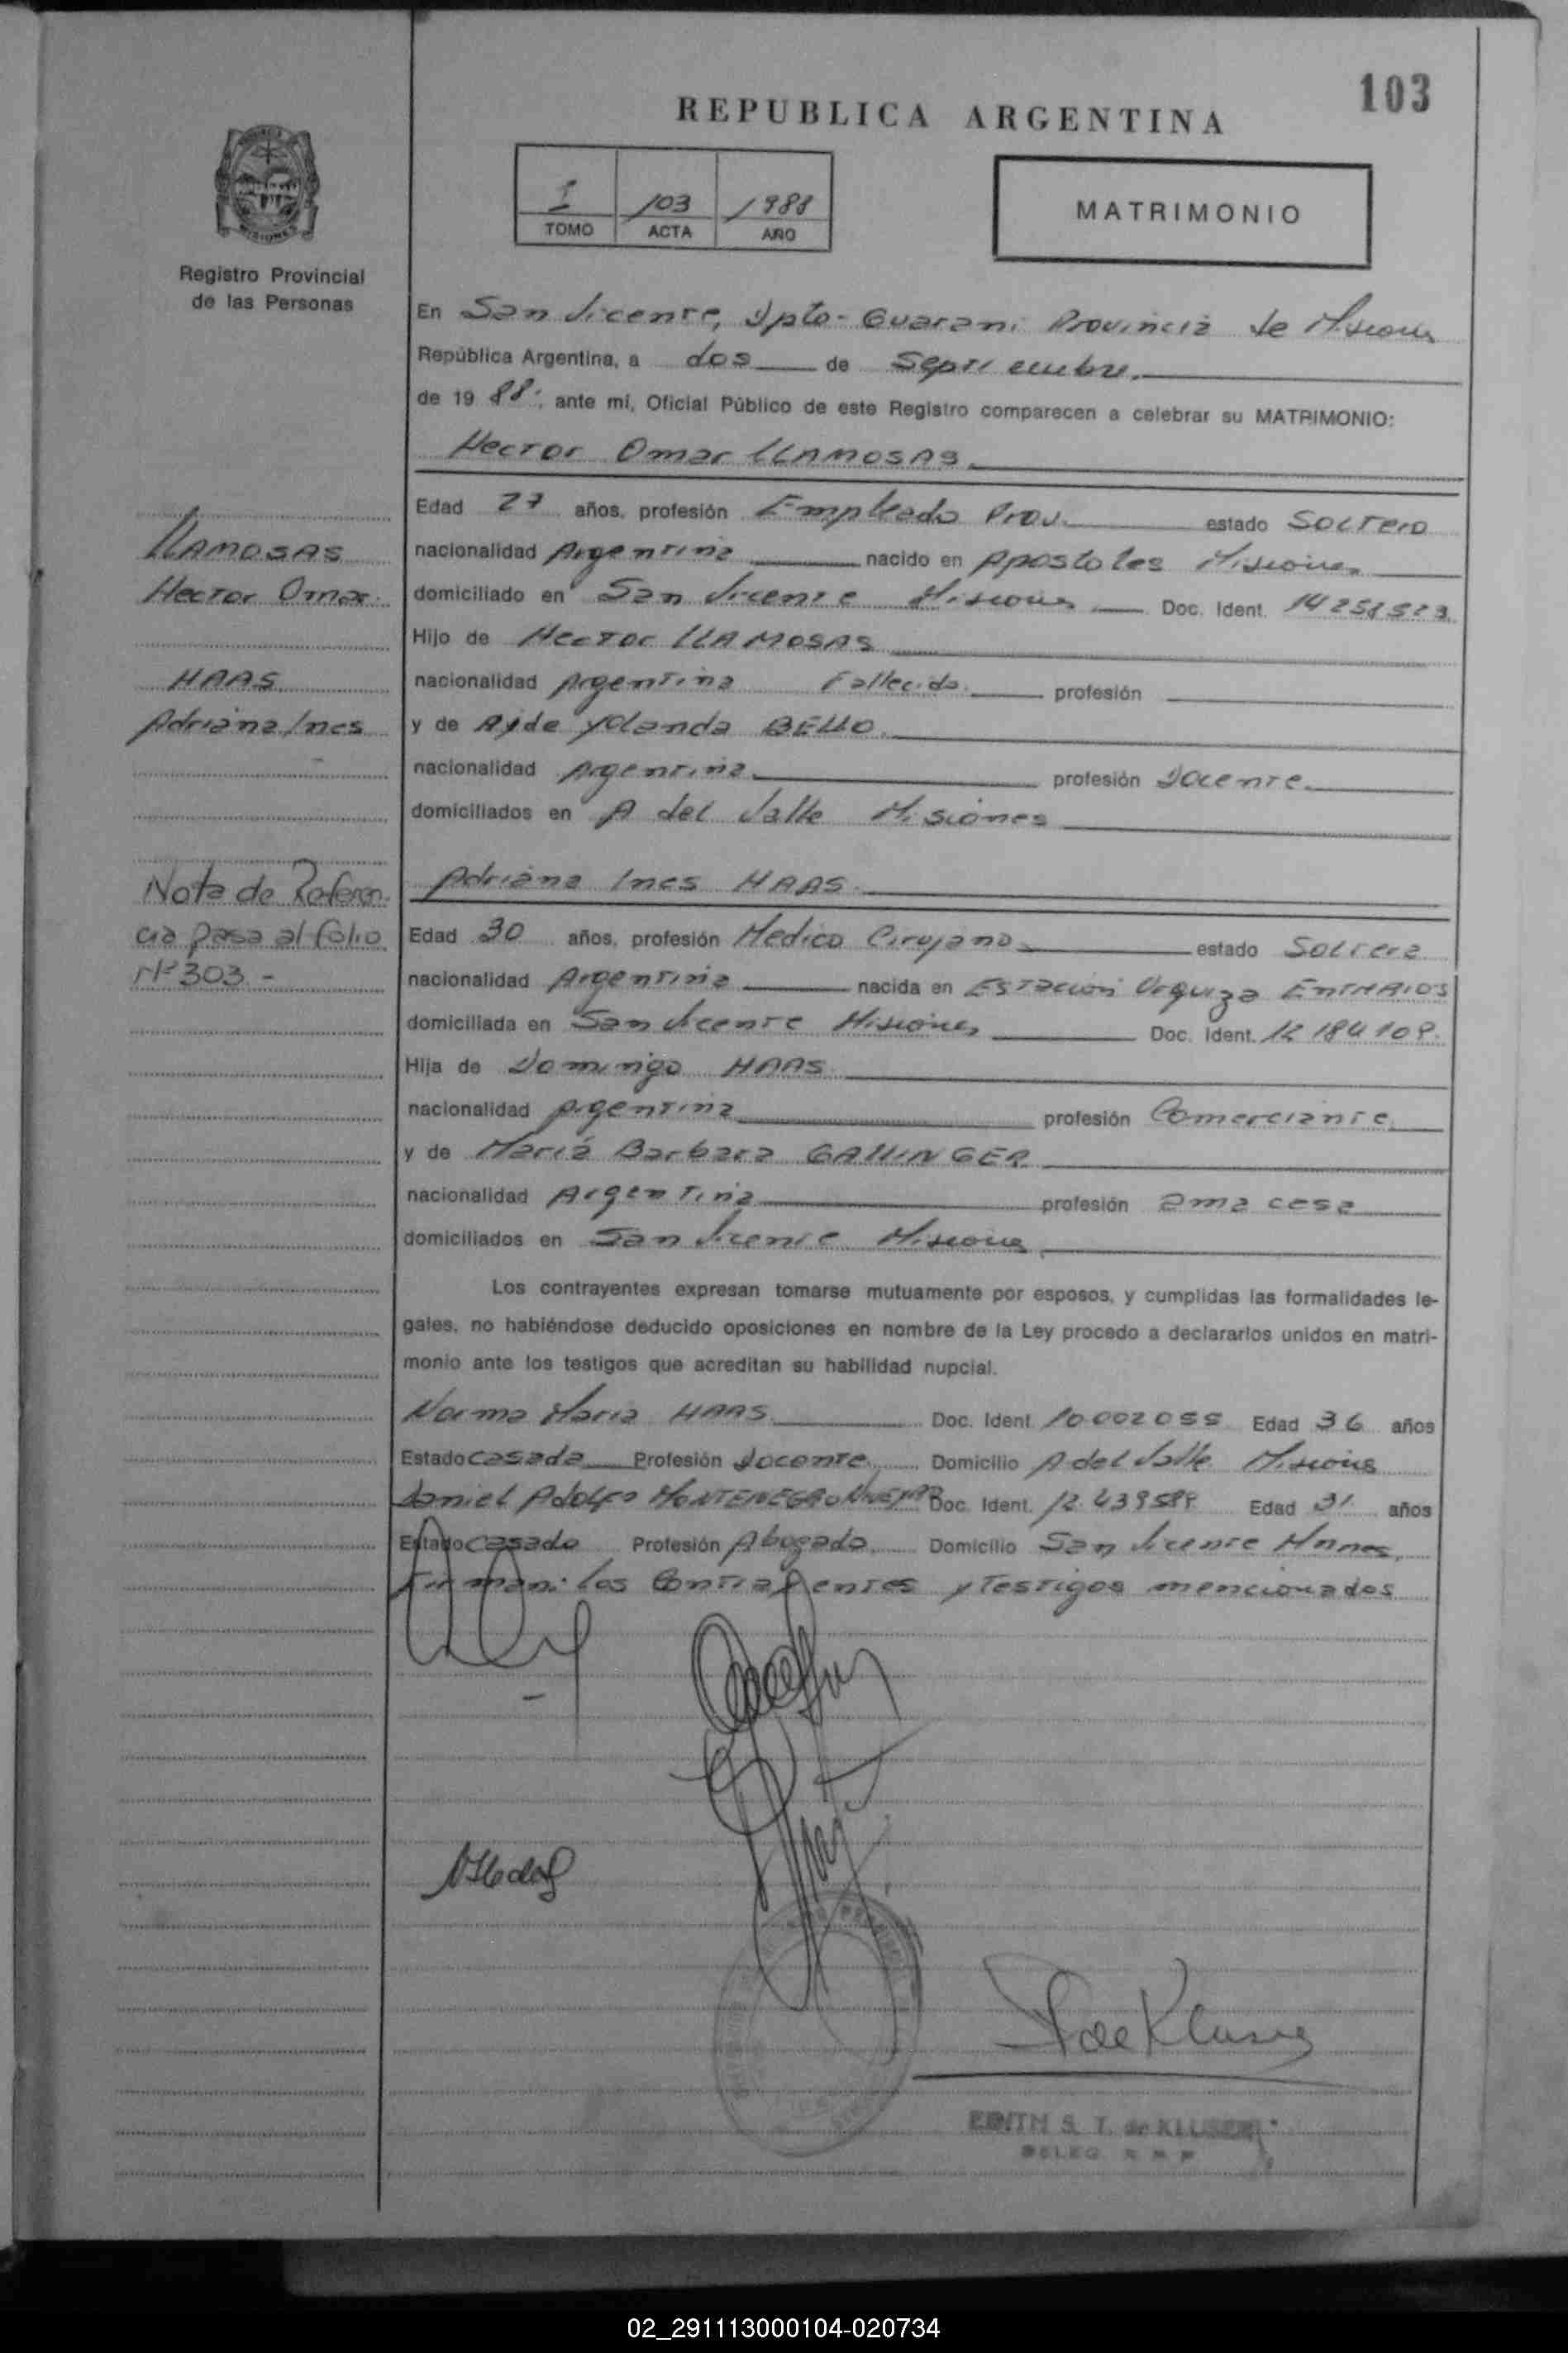 103
REPUBLICA ARGENTINA
I 103 1988
TOMO ACTA AÑO
MATRIMONIO
MISIONES
Registro Provincial
de las Personas
En San Vicente, Dpto- Guarani Provincia de Misiones
República Argentina, a dos de Septiembre.
de 19 88., ante mí, Oficial Público de este Registro comparecen a celebrar su MATRIMONIO:
Hector Omar LLAMOSAS
Edad 27 años, profesión Empleado Prov. estado Soltero
nacionalidad Argentina nacido en Apostoles Misiones
domiciliado en San Vicente Misiones Doc. Ident.
Hijo de Hector LLAMOSAS
nacionalidad Argentina Fallecido. profesión
y de Ayde Yolanda BELLO
nacionalidad Argentina profesión Docente
domiciliados en A del Valle Misiones
LLAMOSAS
Hector Omar.
HAAS
Adriana Ines
Nota de Referen
cia pasa al folio
Nº 303.-
Adriana Ines HAAS.
Edad 30 años, profesión Medico Cirujano estado Soltera
nacionalidad Argentina nacida en Estación Urquiza EntreRios
domiciliada en San Vicente Misiones Doc. Ident.
Hija de Domingo HAAS
nacionalidad Argentina profesión Comerciante
y de Maria Barbara GALLINGER
nacionalidad Argentina profesión ama casa
domiciliados en San Vicente Misiones
Los contrayentes expresan tomarse mutuamente por esposos, y cumplidas las formalidades le-
gales, no habiéndose deducido oposiciones en nombre de la Ley procedo a declararlos unidos en matri-
monio ante los testigos que acreditan su habilidad nupcial.
Norma Maria HAAS Doc. Ident. 10.002055 Edad 36 años
Estado casada Profesión Docente Domicilio A del Valle Misiones
Daniel Adolfo MONTENEGRO Doc. Ident. Edad 31 años
Estado casado Profesión Abogado Domicilio San Vicente Mnnes.
Firman: los Contrayentes y Testigos mencionados
de Kluser
EDITH S. T. de KLUSER
DELEG. R R P
02_291113000104-020734